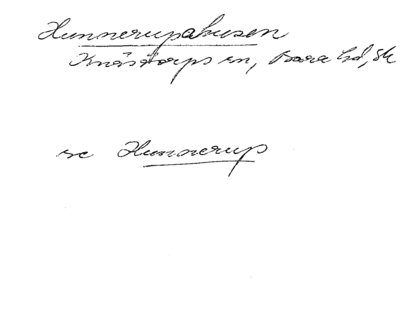 Hunnerupahusen
Knästorps sn, Bara hd, Sk
se Hunnerup